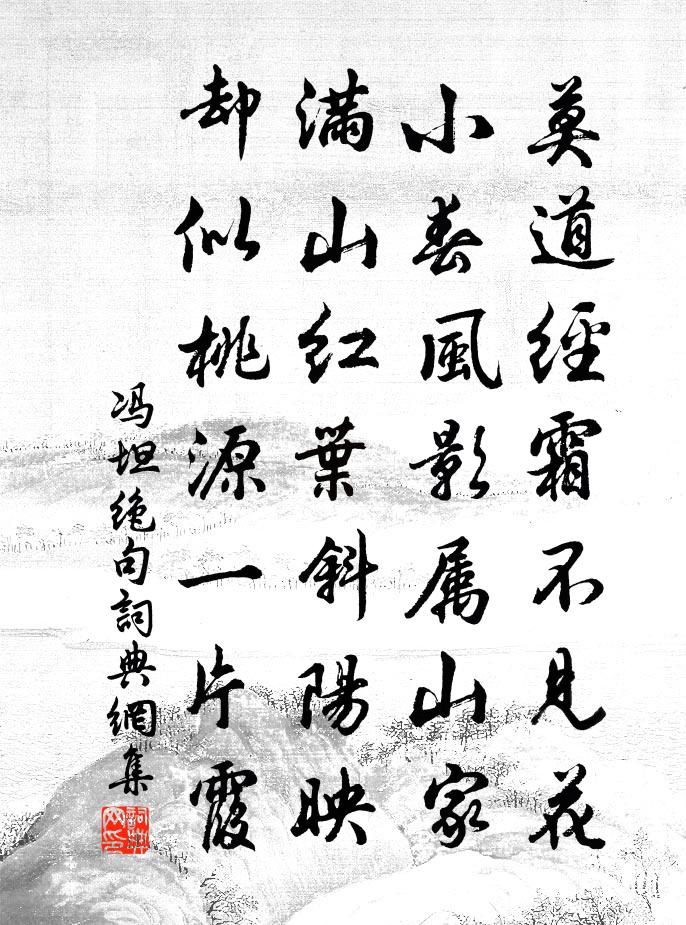 莫道經霜不見花
小春風影属山家
滿山紅葉斜陽映
却似桃源一片霞
冯坦绝句詞典網集
詞典网印